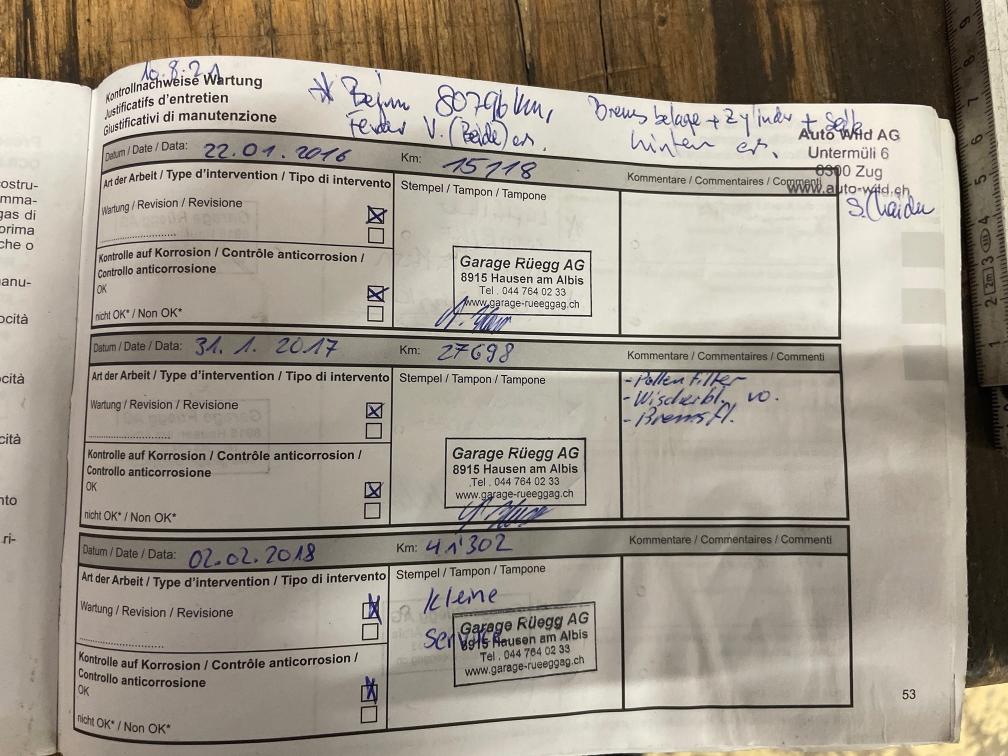 10.8.21
Kontrollnachweise Wartung
Justificatifs d'entretien
Giustificativi di manutenzione
* 80796 km,
Feder V. (Beide) ers.
Bremsbeläge + Zylinder + Seile
hinten ers.
Auto Wild AG
Untermüli 6
6300 Zug
www.auto-wild.ch
Datum / Date / Data: 22.01.2016 Km: 15118 Kommentare / Commentaires / Commenti
Art der Arbeit / Type d'intervention / Tipo di intervento
Stempel / Tampon / Tampone
Wartung / Revision / Revisione
Kontrolle auf Korrosion / Contrôle anticorrosion /
Controllo anticorrosione
OK
nicht OK* / Non OK*
Garage Rüegg AG
8915 Hausen am Albis
Tel . 044 764 02 33
www.garage-rueeggag.ch
Datum / Date / Data: 31. 1. 2017 Km: 27698 Kommentare / Commentaires / Commenti
Art der Arbeit / Type d'intervention / Tipo di intervento
Stempel / Tampon / Tampone
- Pollenfilter
- Wischerbl. vo.
- Bremsfl.
Wartung / Revision / Revisione
Kontrolle auf Korrosion / Contrôle anticorrosion /
Controllo anticorrosione
OK
nicht OK* / Non OK*
Garage Rüegg AG
8915 Hausen am Albis
Tel . 044 764 02 33
www.garage-rueeggag.ch
Datum / Date / Data: 02.02.2018 Km: 41'302 Kommentare / Commentaires / Commenti
Art der Arbeit / Type d'intervention / Tipo di intervento
Stempel / Tampon / Tampone
Wartung / Revision / Revisione
Kontrolle auf Korrosion / Contrôle anticorrosion /
Controllo anticorrosione
OK
nicht OK* / Non OK*
kleine
Service
Garage Rüegg AG
8915 Hausen am Albis
Tel . 044 764 02 33
www.garage-rueeggag.ch
53
ostru-
mma-
gas di
prima
che o
anu-
ocità
cità
ocità
nto
ri-